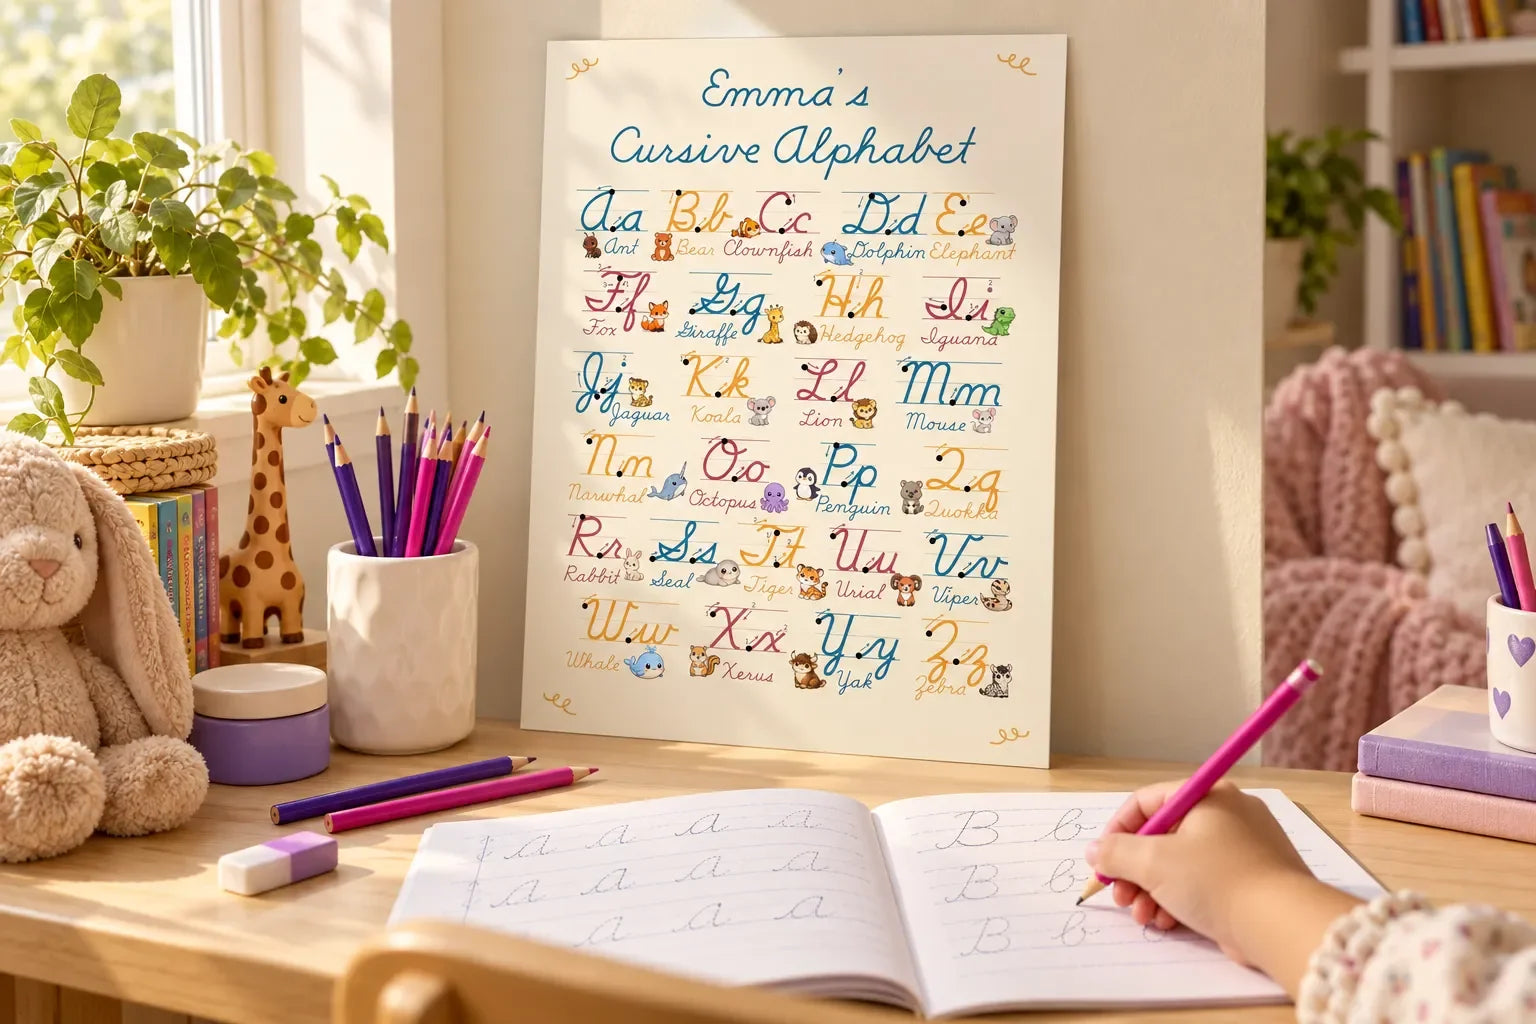 Emma's
Cursive Alphabet
Aa Bb Cc Dd Ee
Ant Bear Clownfish Dolphin Elephant
Ff Gg Hh Ii
Fox Giraffe Hedgehog Iguana
Jj Kk Ll Mm
Jaguar Koala Lion Mouse
Nn Oo Pp Qq
Narwhal Octopus Penguin Quokka
Rr Ss Tt Uu Vv
Rabbit Seal Tiger Urial Viper
Ww Xx Yy Zz
Whale Xerus Yak Zebra
a a a a
a a a a
a a a a
B b
B b
B b